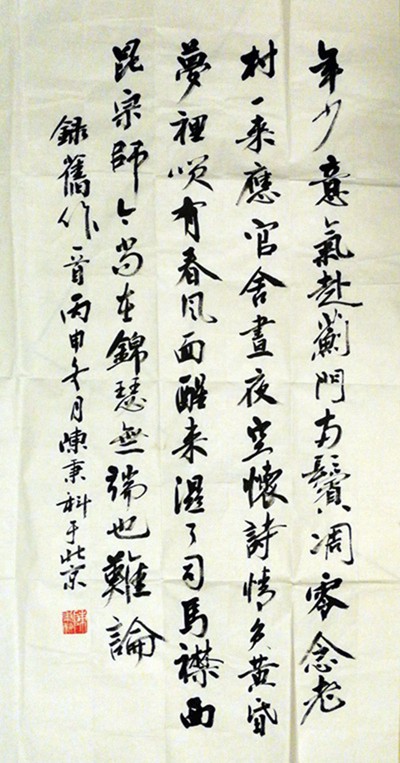 年少意氣赴薊門両鬢凋零念老
村一来應官舍晝夜空懷詩情黄昏
夢裡唤有春风面醒来濕了司馬襟西
昆宗師今尚在錦瑟無端也難論
録舊作一首丙申冬月陳秉科于北京